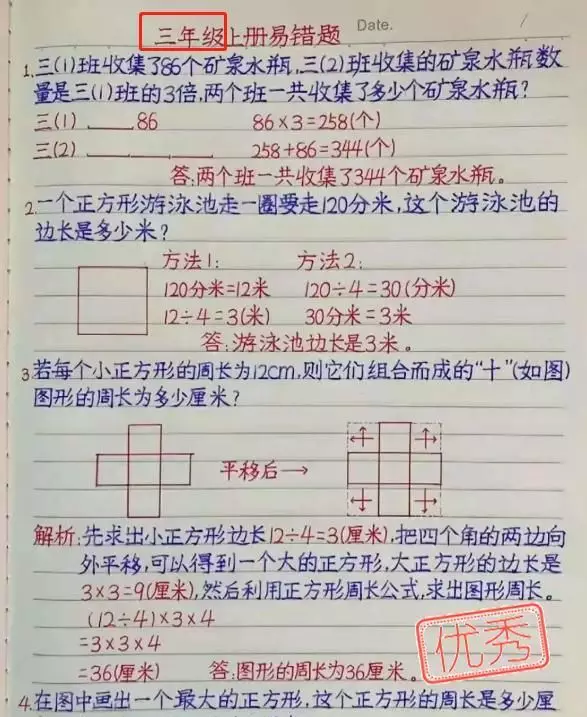 三年级上册易错题 Date.
1.三(1)班收集了86个矿泉水瓶,三(2)班收集的矿泉水瓶数
量是三(1)班的3倍,两个班一共收集了多少个矿泉水瓶?
三(1) 86 86×3=258(个)
三(2) 258+86=344(个)
答:两个班一共收集了344个矿泉水瓶。
2.一个正方形游泳池走一圈要走120分米,这个游泳池的
边长是多少米?
方法1: 方法2:
120分米=12米 120÷4=30(分米)
12÷4=3(米) 30分米=3米
答:游泳池边长是3米。
3.若每个小正方形的周长为12cm,则它们组合而成的“十”(如图)
图形的周长为多少厘米?
平移后→
解析:先求出小正方形边长12÷4=3(厘米),把四个角的两边向
外平移,可以得到一个大的正方形,大正方形的边长是
3×3=9(厘米),然后利用正方形周长公式,求出图形周长。
(12÷4)×3×4
=3×3×4
=36(厘米) 答:图形的周长为36厘米。
优秀
4.在图中画出一个最大的正方形,这个正方形的周长是多少厘